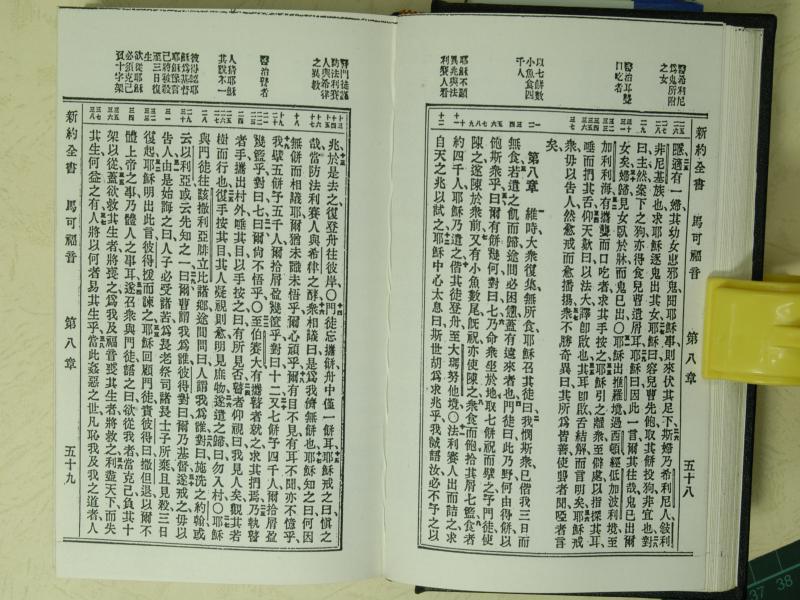 新約全書 馬可福音 第八章 五十八
醫希利尼
為鬼所附
之女
醫治耳聾
口吃者
以七餅數
小魚食四
千人
耶穌不顯
異兆與法
利賽人看
隱適有一婦其幼女患邪鬼聞耶穌事則來伏其足下斯婦乃希利尼人敘利
非尼基族也求耶穌逐鬼出其女耶穌曰容兒曹先飽取其餅投狗非宜也對
曰主然案下之狗亦得食兒曹遺屑耳耶穌曰因此一言爾其往哉鬼已出爾
女矣婦歸見女臥於牀而鬼已出〇耶穌出推羅境過西頓經低加波利境至
加利利海有攜聾而口吃者求其手按之耶穌引之離衆至僻處以指探其耳
唾而捫其舌仰天歎曰以法大譯卽啟也其耳卽啟舌結解而言明矣耶穌戒
衆毋以吿人然愈戒而愈播揚衆不勝奇異曰其所爲皆善使聾者聞啞者言
矣
第八章 維時大衆復集無所食耶穌召其徒曰我憫斯衆已偕我三日而
無食若遣之飢而歸途間必困憊蓋有遠來者也門徒曰此乃野何由得餅以
飽斯衆乎曰爾有餅幾何對曰七乃命衆坐於地取七餅祝而擘之予門徒使
陳之遂陳於衆前又有小魚數尾旣祝亦使陳之衆食而飽拾其屑七籃食者
約四千人耶穌乃遣之偕其徒登舟至大瑪努他境〇法利賽人出而詰之求
自天之兆以試之耶穌中心太息曰斯世胡爲求兆乎我誠語汝必不予之以
新約全書 馬可福音 第八章 五十九
防法利賽
人與希律
之異教
醫治瞽者
人揣耶穌
其說不一
彼得認耶
穌爲基督
耶穌預言
己將被殺
至三日復
生
欲從耶穌
必須克己
負十字架
兆於是去之復登舟往彼岸〇門徒忘攜餅舟中僅一餅耳耶穌戒之曰愼之
哉當防法利賽人與希律之酵衆相議曰是爲我儕無餅也耶穌知之曰何因
無餅而相議耶爾猶未識未悟乎爾心頑乎爾有目不見有耳不聞亦不憶乎
我擘五餅予五千人爾拾屑盈幾筐乎對曰十二又七餅予四千人爾拾屑盈
幾籃乎對曰七曰爾尚不悟乎〇至伯賽大有攜瞽者就之求其捫焉乃執瞽
者手攜出村外唾其目以手按之曰有所見否瞽者仰視曰我見人矣觀其若
樹而行也復手按其目其人疑視則愈明見庶物遂遣之歸曰勿入村〇耶穌
與門徒往該撒利亞腓立比諸鄉途間問曰人謂我爲誰對曰施洗之約翰或
云以利亞或云先知之一曰爾曹謂我爲誰彼得對曰爾乃基督遂戒之毋以
吿人由是始誨之曰人子必受諸苦爲長老祭司諸長士子所棄且見殺三日
復起耶穌明出此言彼得援而諫之耶穌回顧門徒責彼得曰撒但退以爾不
體上帝之事乃體人之事耳遂召衆與門徒語之曰欲從我者當克己負其十
架以從蓋欲救其生者將喪之爲我及福音喪其生者將救之利盡天下而失
其生何益之有人將以何者易其生乎當此姦惡之世凡恥我及我之道者人
37
38